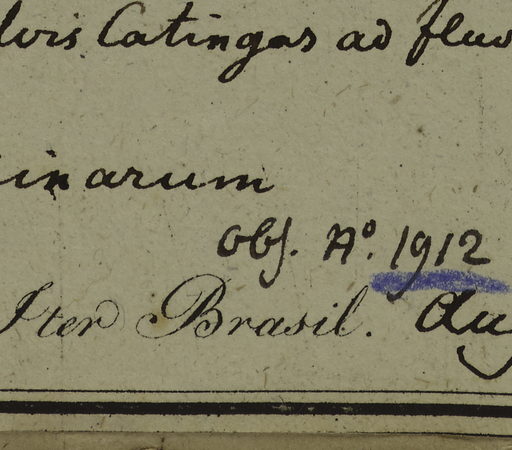 lvis Catingas ad fluv
inarum
Obs. Nº. 1912
Iter Brasil. Aug